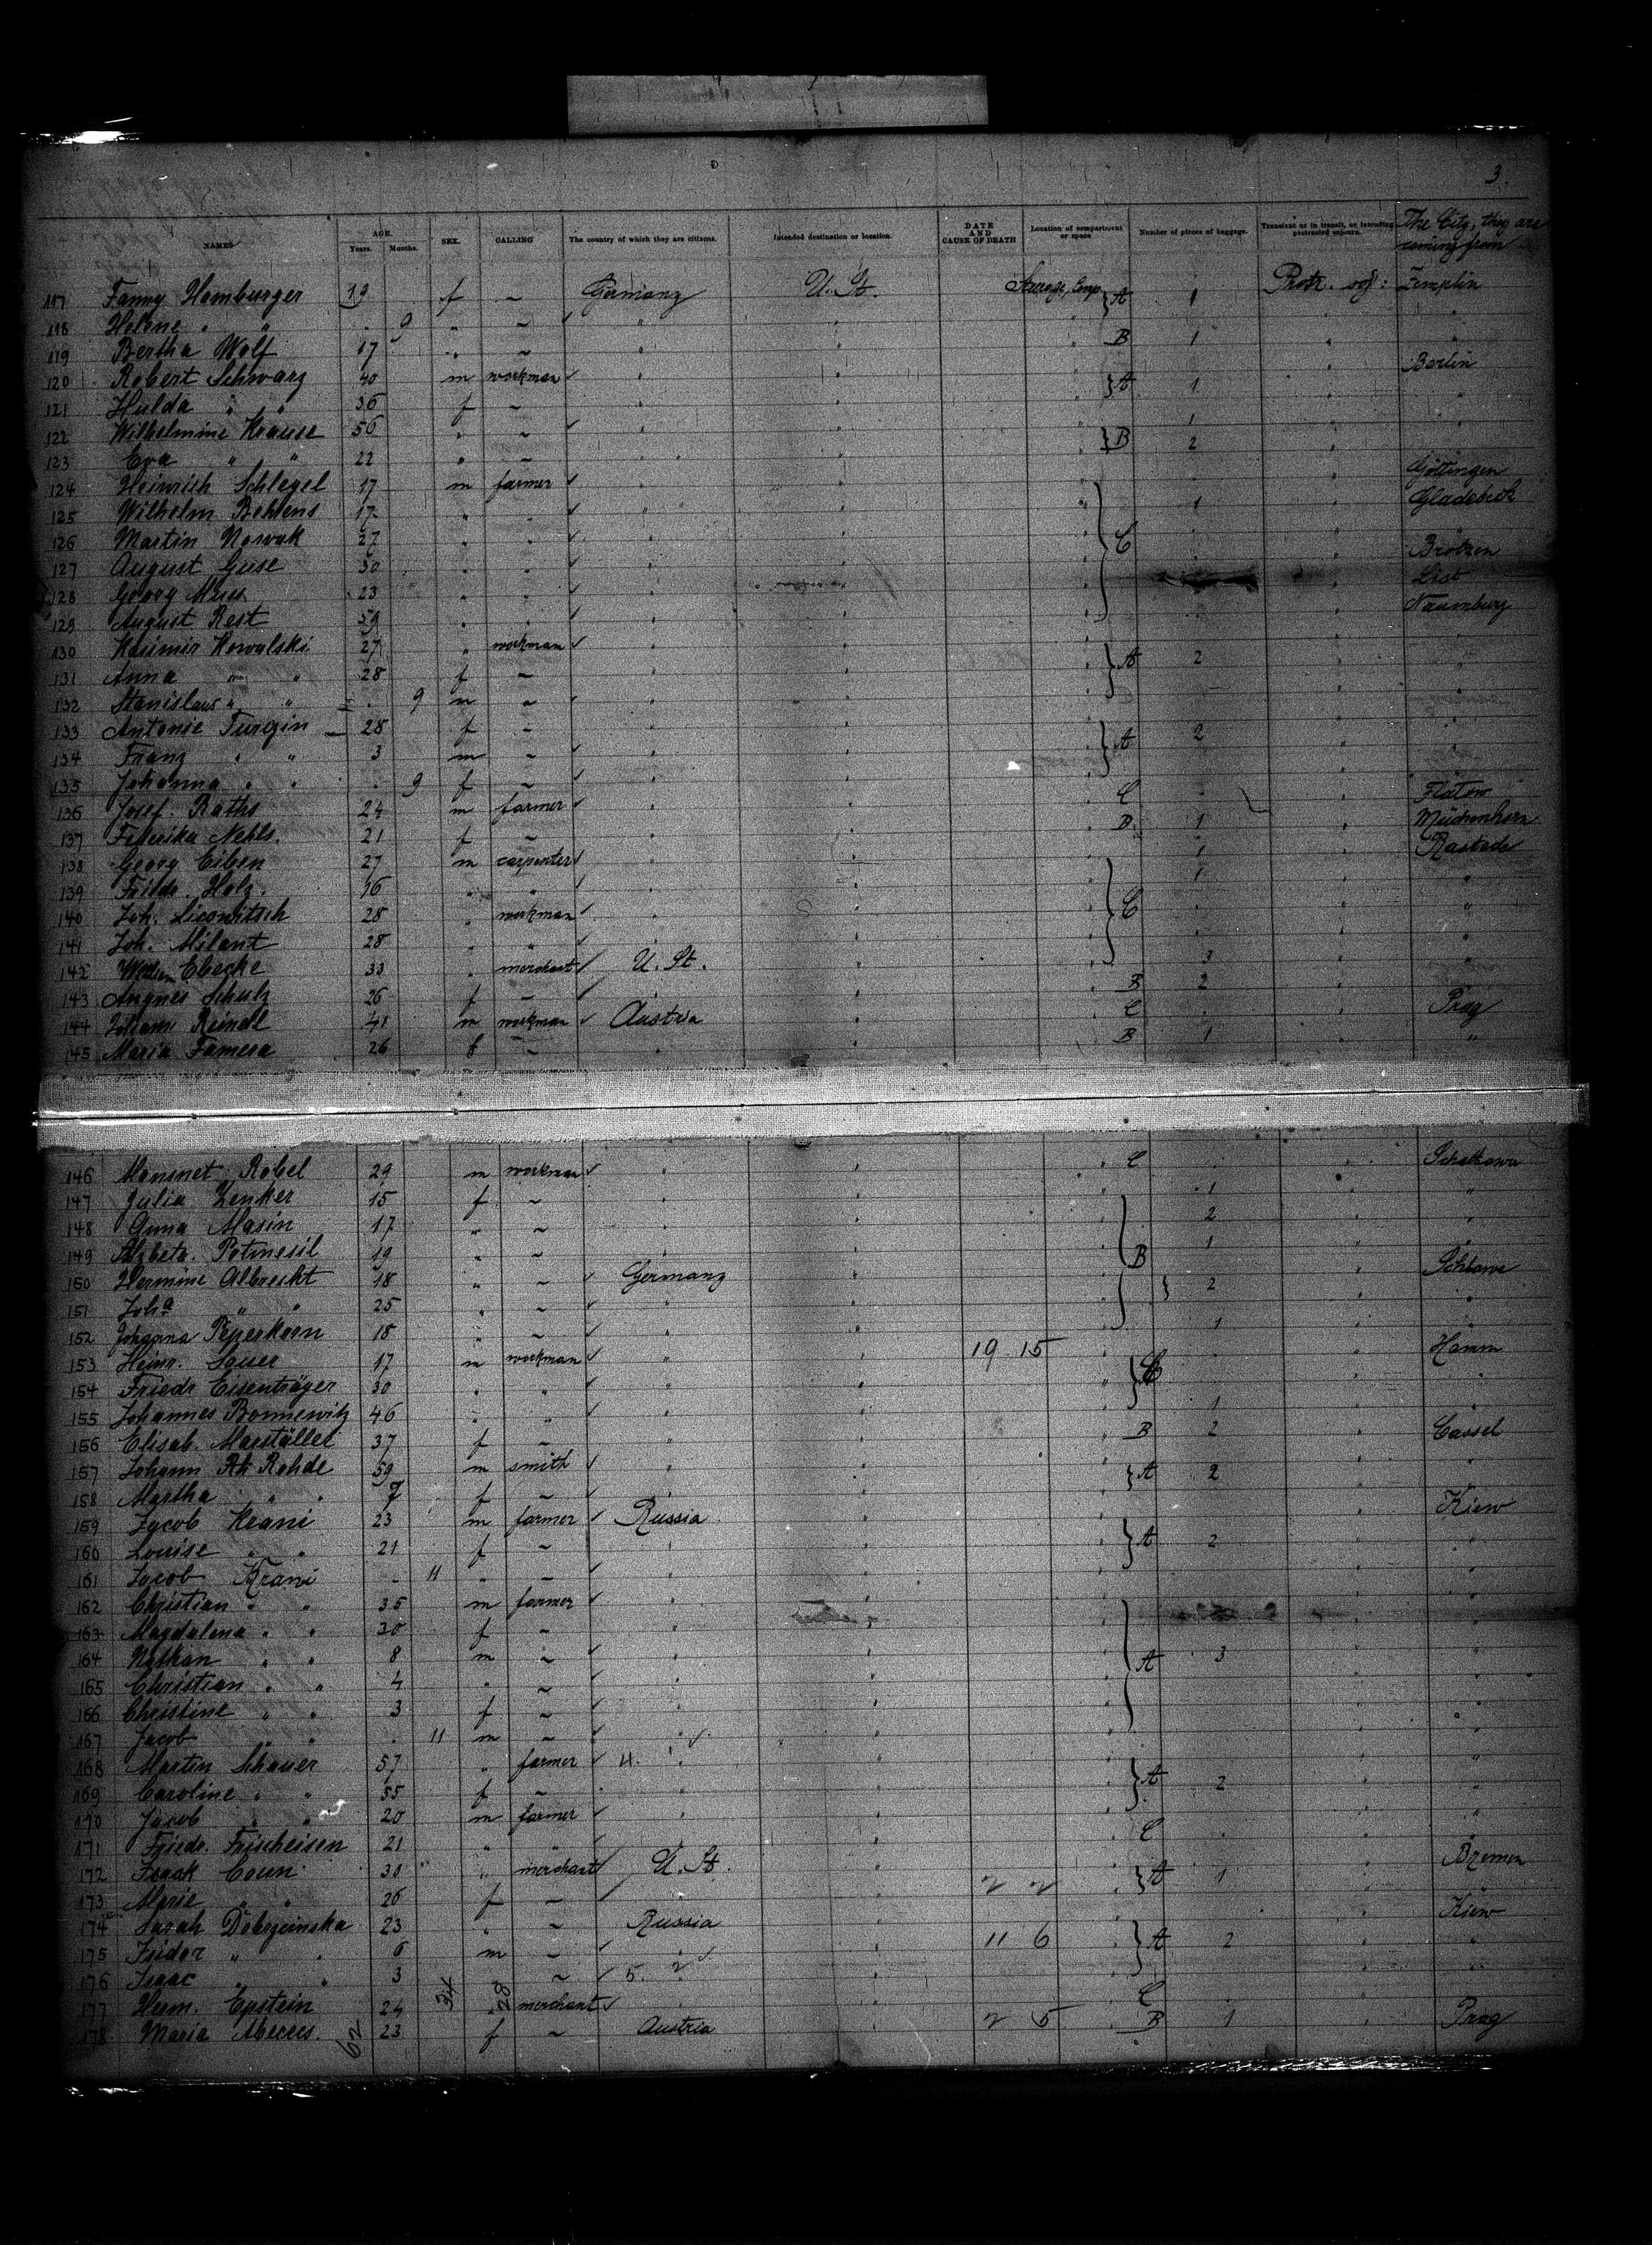 3.
NAMES AGE. Years. Months. SEX. CALLING The country of which they are citizens. Intended destination or location. DATE AND CAUSE OF DEATH Location of compartment or space Number of pieces of baggage. Transient or in transit, or intending protracted sojourn. The City, they are coming from
117 Fanny Hamburger 19 f ~ Germany U. St. A 1 Zemplin
118 Helene " " 9 " ~ " "
119 Bertha Wolf 17 " ~ " " B 1 "
120 Robert Schwarz 40 m workman " " A 1 Berlin
121 Hulda " " 36 f ~ " " "
122 Wilhelmine Krause 56 " ~ " " B 1 "
123 Eva " " 22 " ~ " " 2
124 Heinrich Schlegel 17 m farmer " " Göttingen
125 Wilhelm Behlens 17 " " " " 1 Gladebeck
126 Martin Nowak 27 " " " " C
127 August Guse 30 " " " " Brotzen
128 Georg 23 " " " " List
129 August Rest 59 " " " " Naumburg
130 Kasimir Kowalski 27 " workman " " A 2 "
131 Anna " " 28 f ~ " " "
132 Stanislaus " " 9 m ~ " " "
133 Antonie Turgin 28 f ~ " " A 2 "
134 Franz " " 3 m ~ " " "
135 Johanna " " 9 f ~ " "
136 Josef Raths 24 m farmer " " C Flatow
137 Federika Nehls. 21 f ~ " " B 1
138 Georg Eiben 27 m carpenter " " 1 Rastede
139 Friedr. Holz. 16 " " " " 1 "
140 Joh. Licowitsch 28 " workman " " C "
141 Joh. Milant 28 " " " " "
142 Ebecke 33 " merchant U. St. " 3 "
143 Angnes Schulz 26 f ~ " B 2
144 Johann Reindl 41 m workman Austria " C Prag
145 Maria Famera 26 f ~ " " B 1 "
146 Rabel 29 m workman " " C
147 Julia Zenker 15 f ~ " " 1 "
148 Anna Masin 17 " ~ " " 2 "
149 Alzbeta. Potmesil 19 " ~ " " B 1 "
150 Hermine Albrecht 18 " ~ Germany " 2 Schlawe
151 Joha " " 25 " ~ " " "
152 Johanna Peperkorn 18 " ~ " " 1
153 Heinr. Sauer 17 m workman " " 19 15 C Hamm
154 Friedr Eisenträger 30 " " " " "
155 Johannes Bonnewitz 46 " " " " 1 "
156 Elisab. Marställer 37 f ~ " " B 2 Cassel
157 Johann Rohde 59 m smith " " A 2 "
158 Martha " " 7 f ~ " "
159 Jacob Krani 23 m farmer Russia " A 2 Kiew
160 Louise " " 21 f ~ " " "
161 Jacob Krani 11 " ~ " " "
162 Christian " " 35 m farmer " " "
163 Magdalena " " 30 f ~ " " "
164 Nathan " " 8 m ~ " " A 3 "
165 Christian " " 4 " ~ " " "
166 Christine " " 3 f ~ " " "
167 Jacob " " 11 m ~ " " "
168 Martin Schauer 57 " farmer 4. " " A 2 "
169 Caroline " " 55 f ~ " " "
170 Jacob " " 20 m farmer " " "
171 Friedr. Frischeisen 21 " " " " C "
172 Isaak Coun 30 " merchant U. St. " A 1 Bremen
173 Marie " " 26 f ~ " 2 2
174 Sarah Dobrzcinska 23 " ~ Russia " Kiew
175 Isidor " " 6 m ~ " " 11 6 A 2 "
176 Isaac " " 3 ~ 5. 2 "
177 Herm. Epstein 24 34 28 merchant " " C
178 Maria 62 23 f ~ Austria " 2 5 B 1 Prag